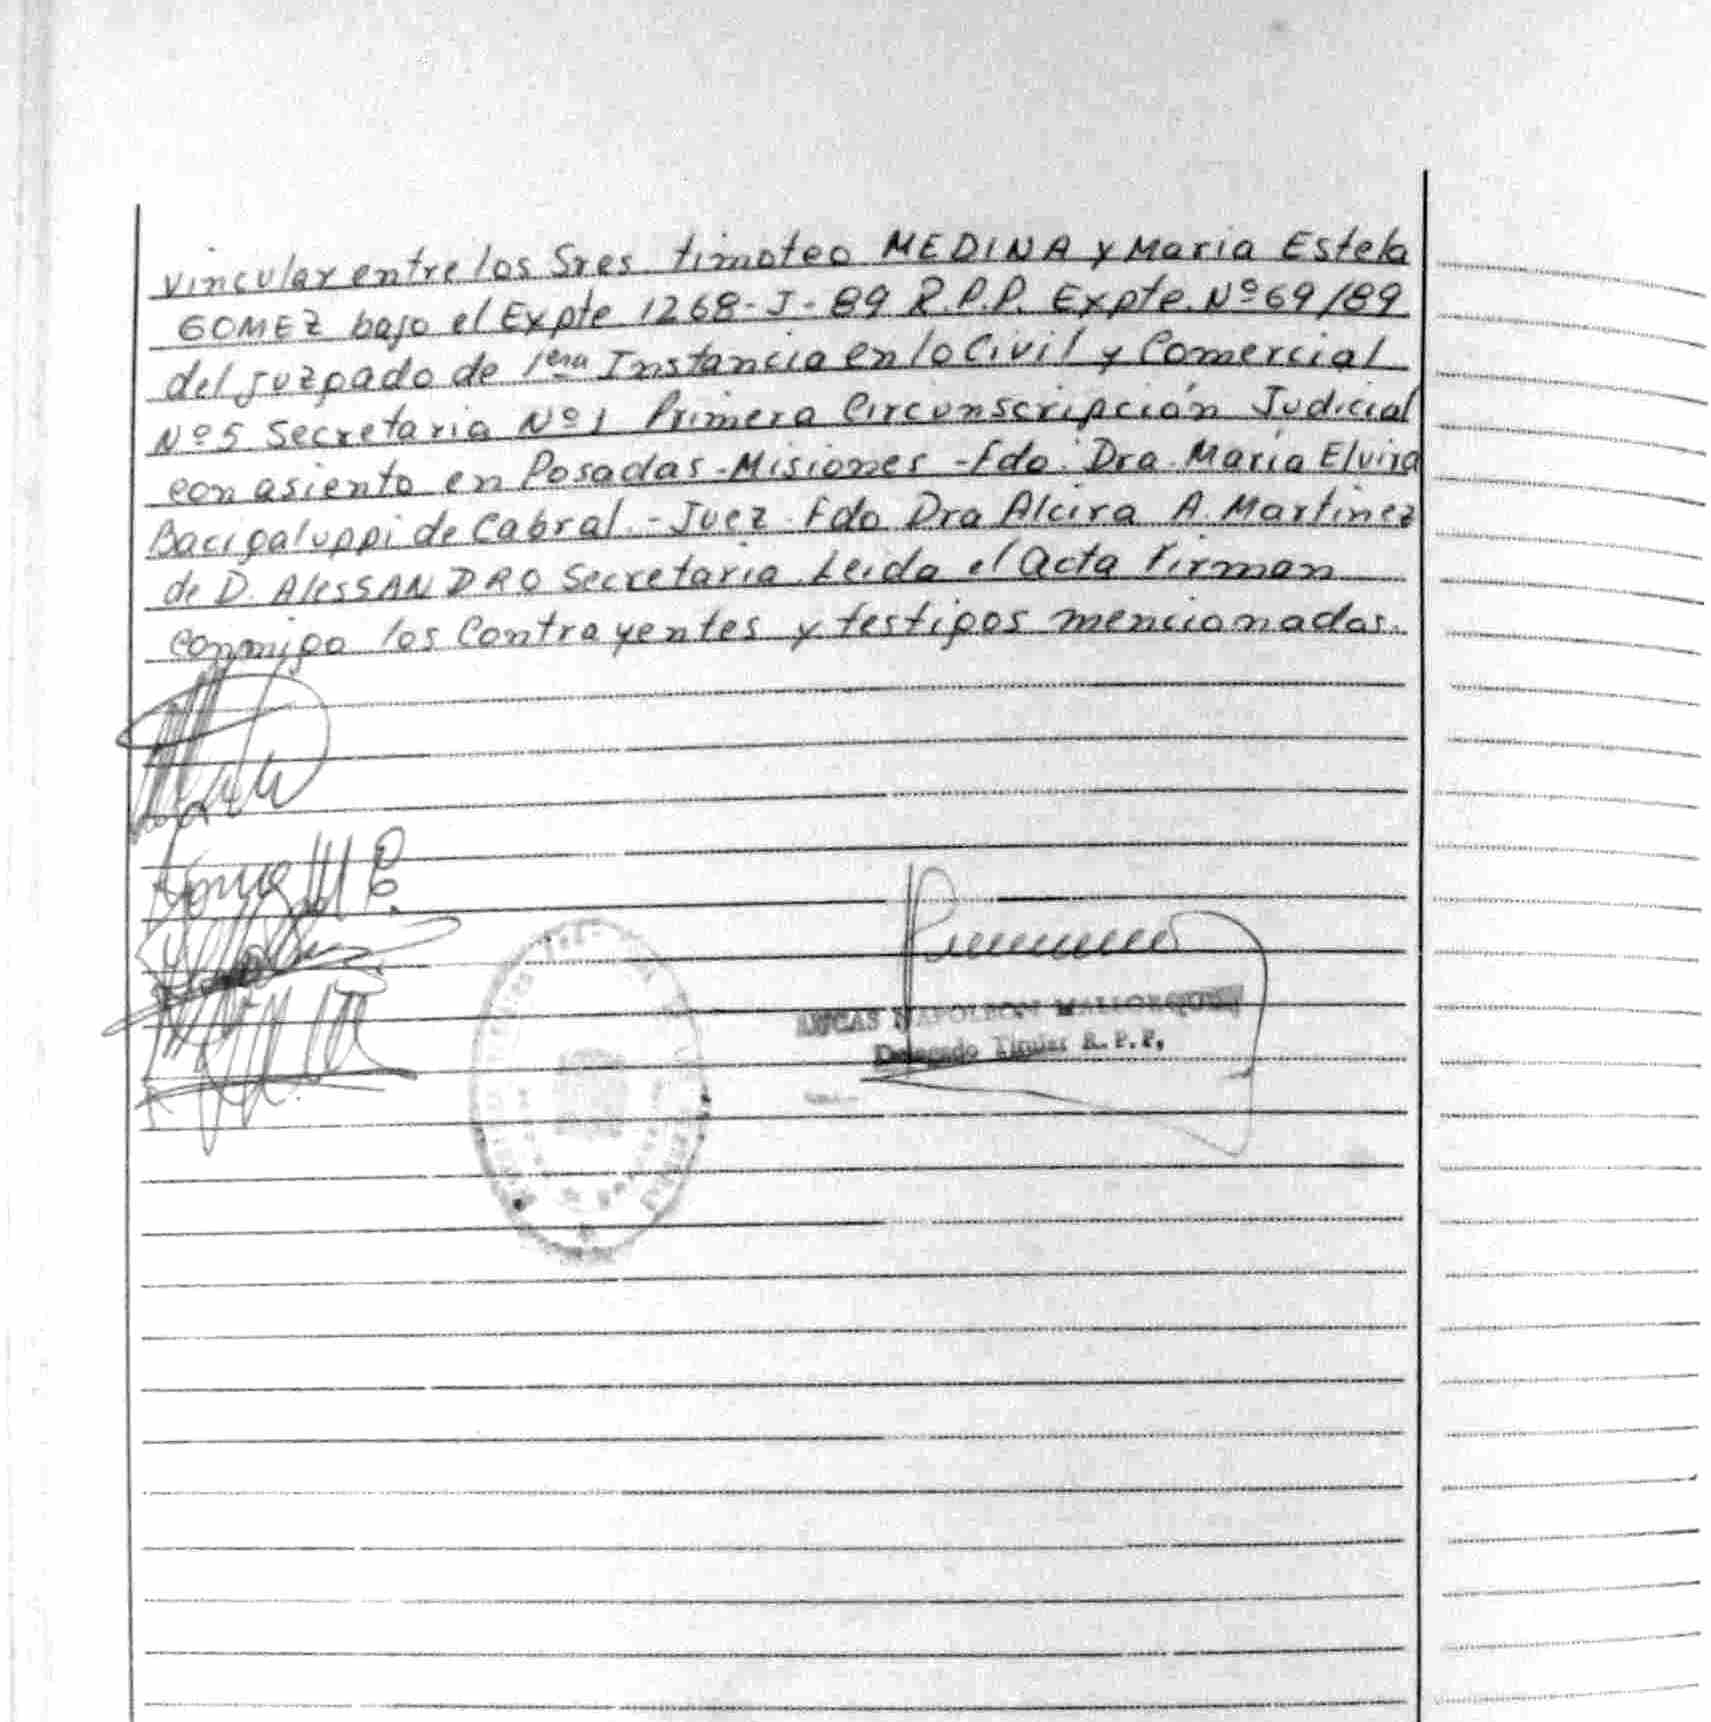 vincular entre los Sres. timoteo MEDINA y Maria Estela
GOMEZ bajo el Expte 1268-J-89 R.P.P. Expte. Nº 69/89
del juzgado de 1era Instancia en lo Civil y Comercial
Nº 5 Secretaria Nº 1 Primera Circunscripción Judicial
con asiento en Posadas-Misiones-fdo. Dra. María Elvira
Bacigaluppi de Cabral.-Juez. fdo Dra Alcira A. Martinez
de D. AlesSANDRO Secretaria. Leida el acta firman
conmigo los Contrayentes y testigos mencionados.
LUCAS NAPOLEON MALLORQUIN
Delegado Titular R.P.P.